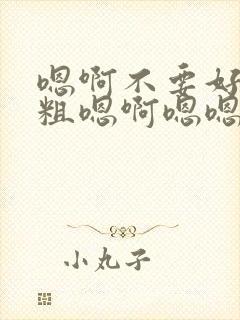 嗯啊不要好
粗嗯啊嗯嗯
小丸子